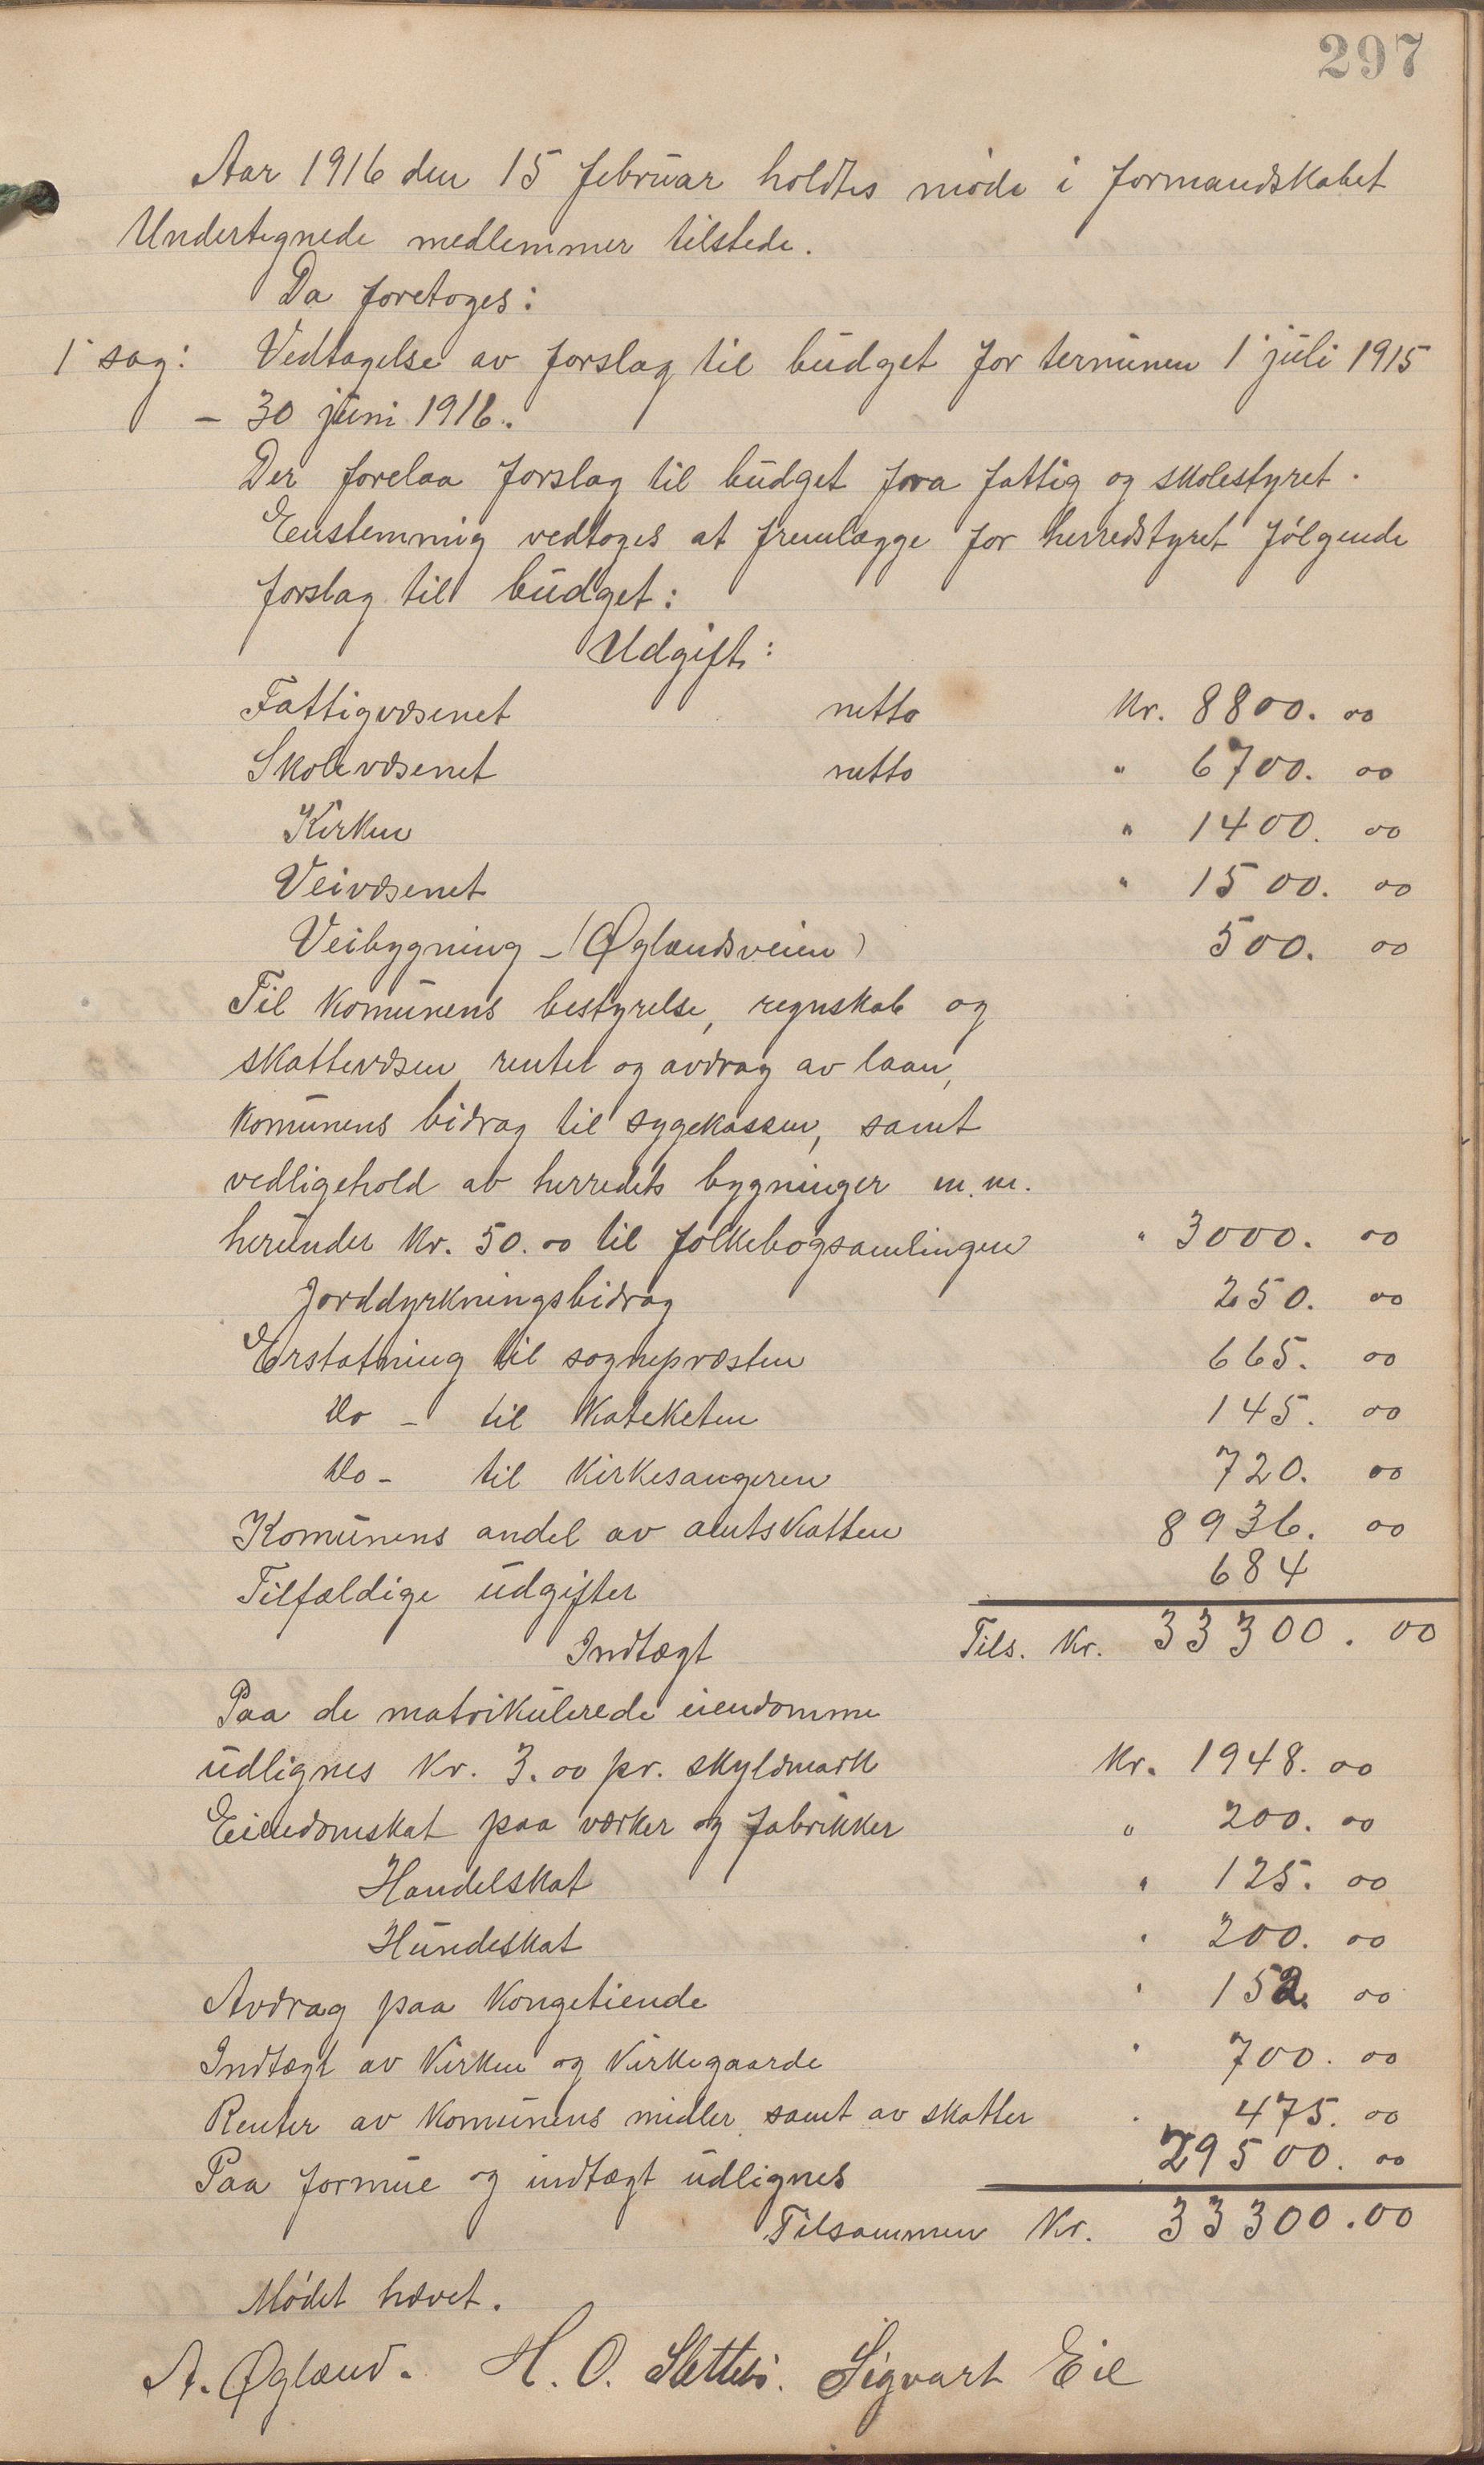 297
Aar 1916 den 15 februar holdtes møde i formandskabet
Undertegnede medlemmer tilstede.
Da foretoges:
1' sag: Vedtagelse av forslag til budget for terminen 1' juli 1915
- 30 juni 1916.
Der forelaa forslag til budget fra fattig og skolestyret.
Eenstemmig vedtoges at fremlægge for herredstyret følgende
forslag til budget:
Udgift:
Fattigvæsenet netto Kr. 8800. 00
Skolevæsenet netto " 6700. 00
Kirken " 1400. 00
Veivæsenet " 1500. 00
Veibygning - (Øglændsveien) 500. 00
Til komunens bestyrelse, regnskab og
skattevæsen, renter og avdrag av laan,
komunens bidrag til sygekassen, samt
vedligehold av herredets bygninger m.m.
herunder Kr. 50.00 til folkebogsamlingen " 3000. 00
Jorddyrkningsbidrag 250. 00
Erstatning til sognepræsten 665. 00
Do - til Kateketen 145. 00
Do - til Kirkesangeren 720. 00
Komunens andel av amtskatten 8936. 00
Tilfældige udgifter 684
Tils. Kr. 33300. 00
Indtægt
Paa de matrikulerede eiendomme
udlignes Kr. 3.00 pr. skyldmark Kr. 1948. 00
Eiendomskat paa værker og fabrikker " 200. 00
Handelskat " 125. 00
Hundeskat " 200. 00
Avdrag paa Kongetiende " 152. 00
Indtægt av Kirken og Kirkegaarde " 700. 00
Renter av Komunens midler samt av skatter " 475. 00
Paa formue og indtægt udlignes 29500. 00
Tilsammen Kr. 33300.00
Mødet hævet.
A. Øglænd. H. O. Slettebø. Sigvart Eie